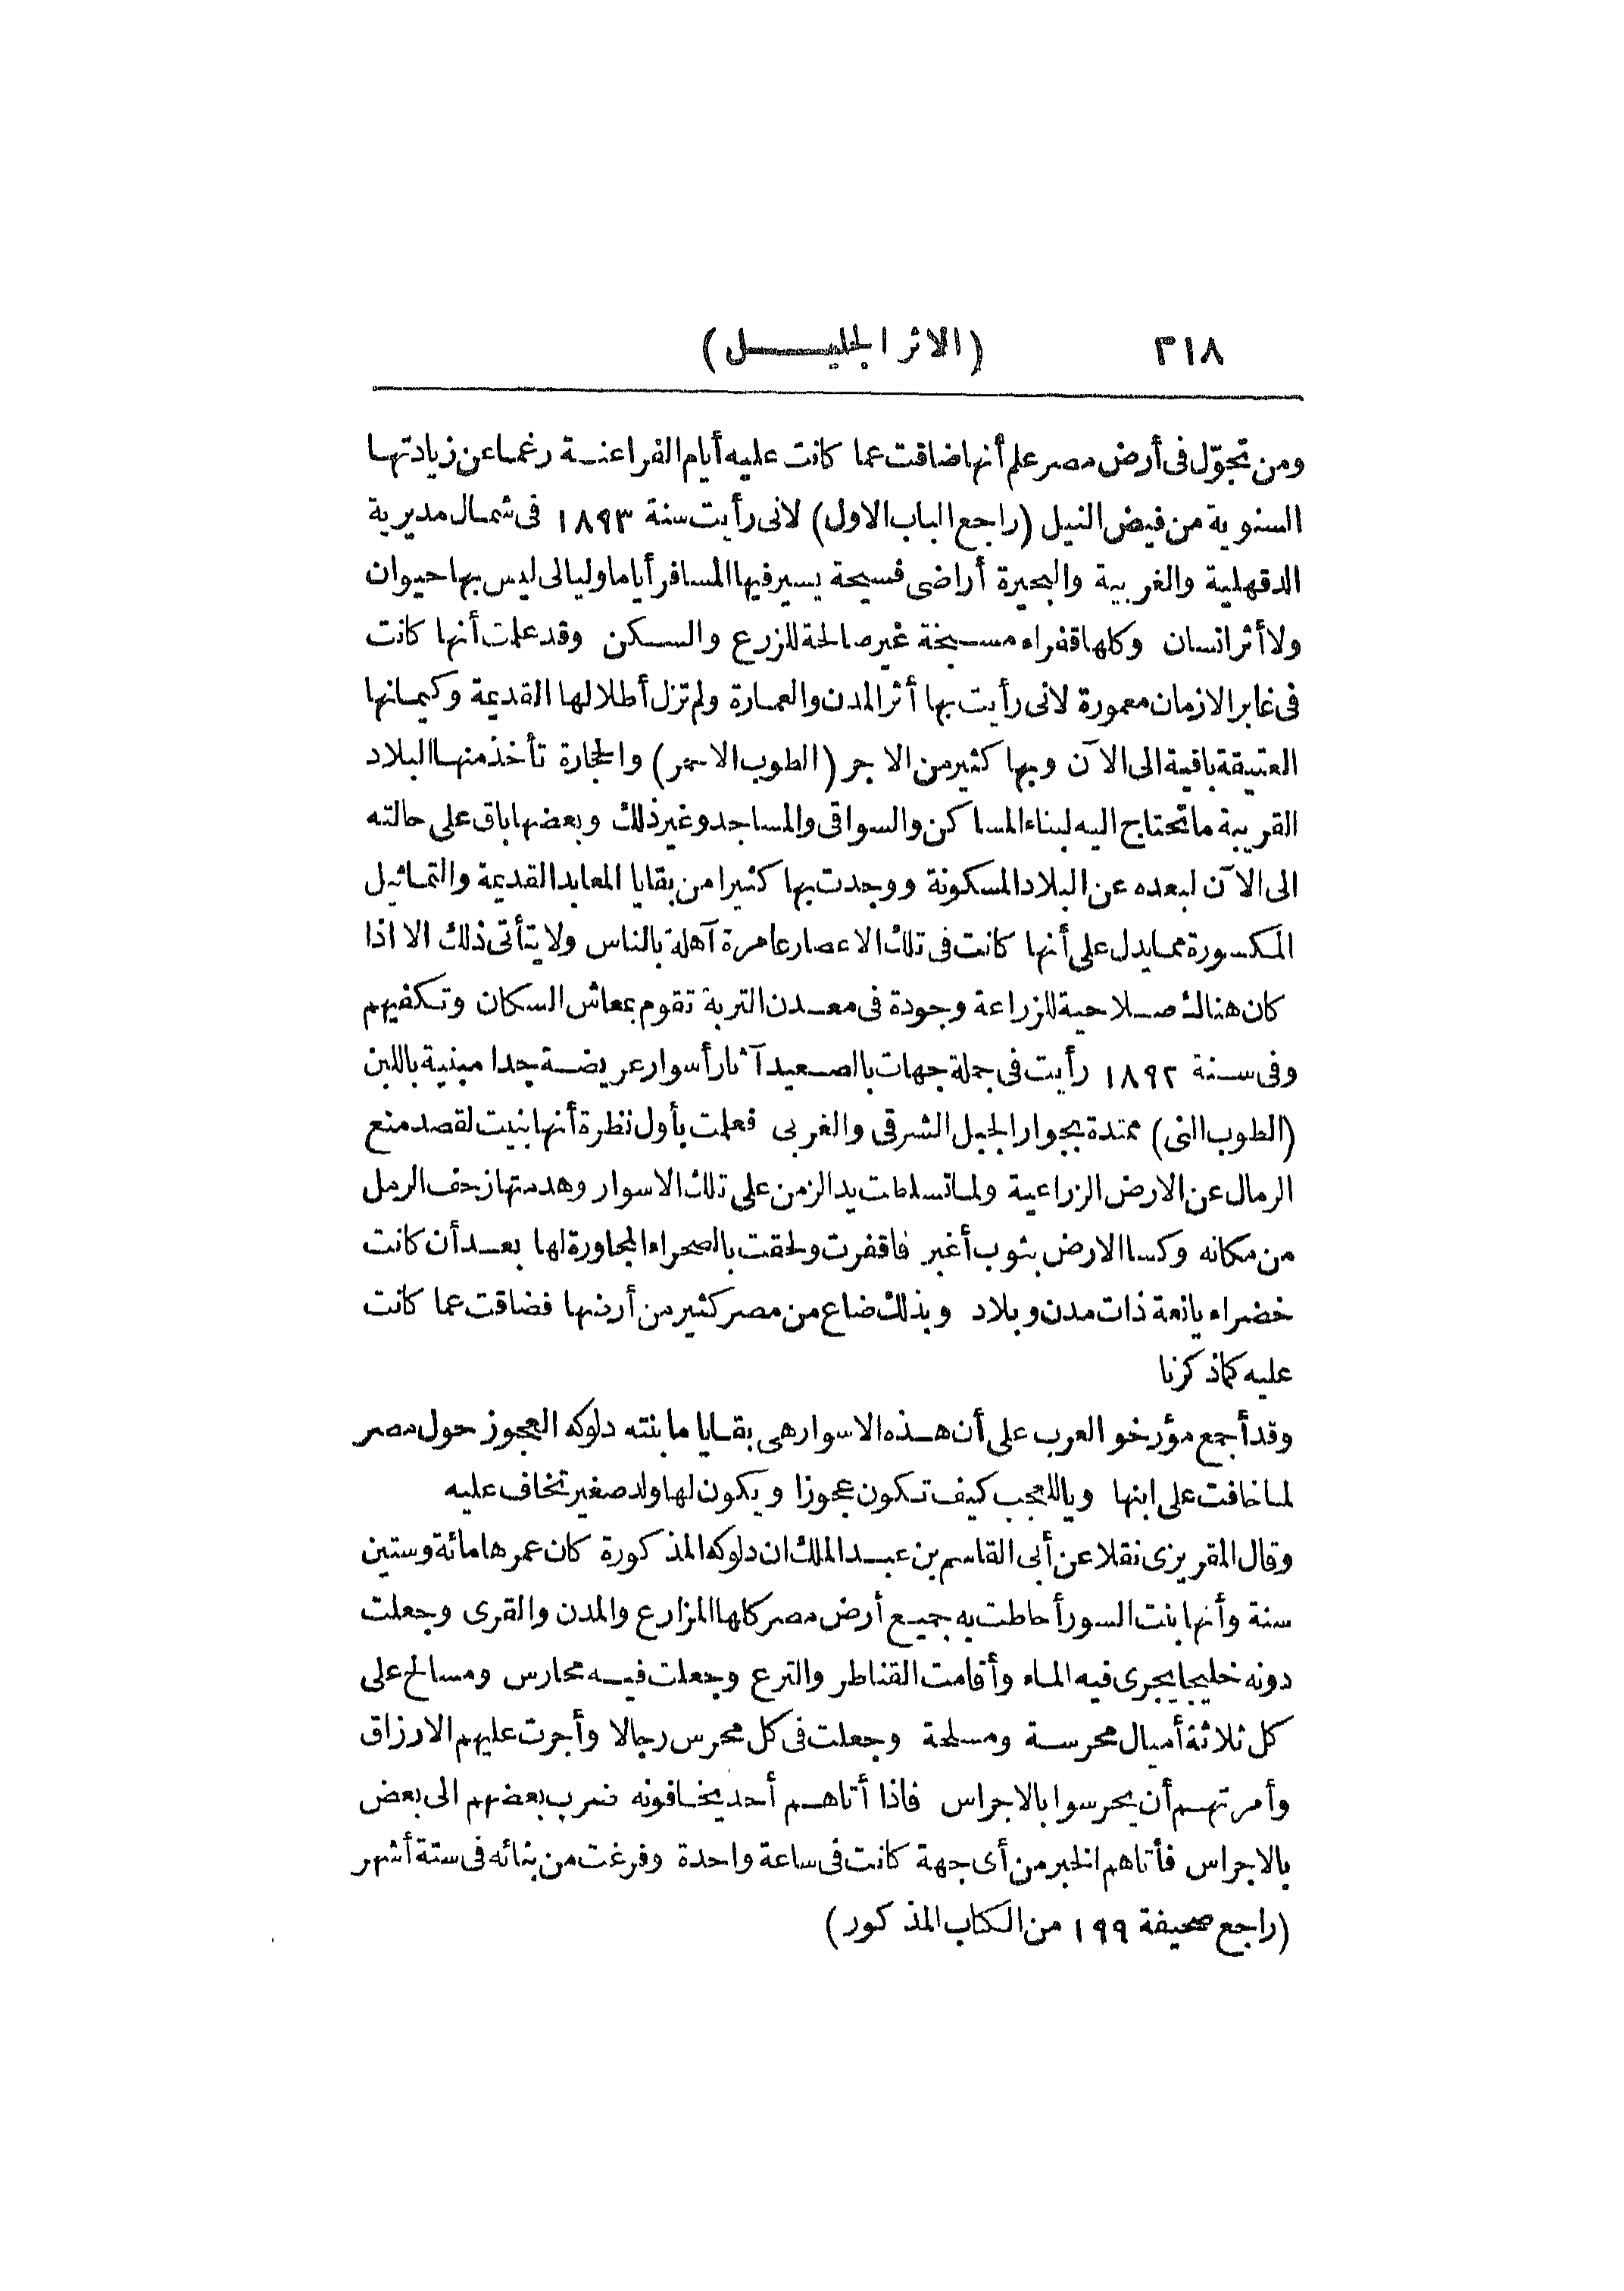 ٣١٨ (الاثر الجليل)
ومن تجوّل فى أرض مصر علم أنها ضاقت عما كانت عليه أيام الفراعنة رغما عن زيادتها
السنوية من فيض النيل (راجع الباب الاول) لانى رأيت سنة ١٨٩٣ فى شمال مديرية
الدقهلية والغربية والبحيرة أراضى فسيحة يسير فيها المسافر أياما وليالى ليس بها حيوان
ولا أثر انسان وكلها قفراء مسبخة غير صالحة للزرع والسكن وقد علمت أنها كانت
فى غابر الازمان معمورة لانى رأيت بها أثر المدن والعمارة ولم تزل أطلالها القديمة وكيمانها
العتيقة باقية الى الآن وبها كثير من الاجر (الطوب الاحمر) والحجارة تأخذ منها البلاد
القريبة ما تحتاج اليه لبناء المساكن والسواقى والمساجد وغير ذلك وبعضها باق على حالته
الى الآن لبعده عن البلاد المسكونة ووجدت بها كثيرا من بقايا المعابد القديمة والتماثيل
المكسورة مما يدل على أنها كانت فى تلك الاعصار عامرة آهلة بالناس ولا يتأتى ذلك الا اذا
كان هناك صلاحية للزراعة وجودة فى معدن التربة تقوم بمعاش السكان وتكفيهم
وفى سنة ١٨٩٢ رأيت فى جملة جهات بالصعيد آثار أسوار عريضة جدا مبنية باللبن
(الطوب النى) ممتدة بجوار الجبل الشرقى والغربى فعلمت بأول نظرة أنها بنيت لقصد منع
الرمال عن الارض الزراعية ولما تسلطت يد الزمن على تلك الاسوار وهدمتها زحف الرمل
من مكانه وكسا الارض بثوب أغبر فاقفرت ولحقت بالصحراء المجاورة لها بعد أن كانت
خضراء يانعة ذات مدن وبلاد وبذلك ضاع من مصر كثير من أرضها فضاقت عما كانت
عليه كما ذكرنا
وقد أجمع مؤرخو العرب على أن هذه الاسوار هى بقايا ما بنته دلوكه العجوز حول مصر
لما خافت على ابنها وياللعجب كيف تكون عجوزا ويكون لها ولد صغير تخاف عليه
وقال المقريزى نقلا عن أبى القاسم بن عبد الملك ان دلوكه المذكورة كان عمرها مائة وستين
سنة وأنها بنت السور أحاطت به جميع أرض مصر كلها المزارع والمدن والقرى وجعلت
دونه خليجا يجرى فيه الماء وأقامت القناطر والترع وجعلت فيه محارس ومسالح على
كل ثلاثة أميال محرسة ومسلحة وجعلت فى كل محرس رجالا وأجرت عليهم الارزاق
وأمرتهم أن يحرسوا بالاجراس فاذا أتاهم أحد يخافونه ضرب بعضهم الى بعض
بالاجراس فأتاهم الخبر من أى جهة كانت فى ساعة واحدة وفرغت من بنائه فى ستة أشهر
(راجع صحيفة ١٩٩ من الكتاب المذكور)